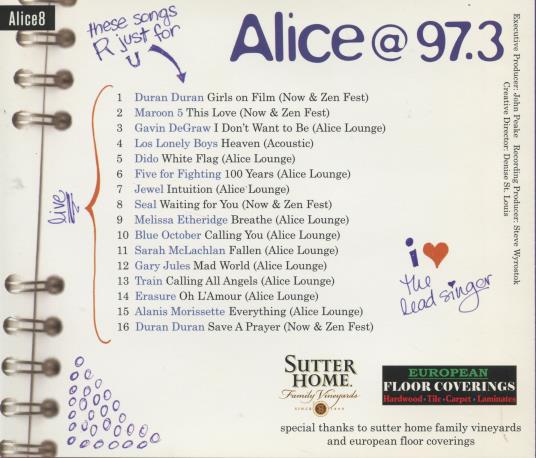 Alice8
these songs
R just for
U
Alice@97.3
1 Duran Duran Girls on Film (Now & Zen Fest)
2 Maroon 5 This Love (Now & Zen Fest)
3 Gavin DeGraw I Don't Want to Be (Alice Lounge)
4 Los Lonely Boys Heaven (Acoustic)
5 Dido White Flag (Alice Lounge)
6 Five for Fighting 100 Years (Alice Lounge)
7 Jewel Intuition (Alice Lounge)
8 Seal Waiting for You (Now & Zen Fest)
9 Melissa Etheridge Breathe (Alice Lounge)
10 Blue October Calling You (Alice Lounge)
11 Sarah McLachlan Fallen (Alice Lounge)
12 Gary Jules Mad World (Alice Lounge)
13 Train Calling All Angels (Alice Lounge)
14 Erasure Oh L'Amour (Alice Lounge)
15 Alanis Morissette Everything (Alice Lounge)
16 Duran Duran Save A Prayer (Now & Zen Fest)
live
Executive Producer: John Peake Recording Producer: Steve Wyrostok
Creative Director: Denise St. Louis
i
the
lead singer
SUTTER
HOME.
Family Vineyards
SINCE 1890
EUROPEAN
FLOOR COVERINGS
Hardwood·Tile·Carpet·Laminates
special thanks to sutter home family vineyards
and european floor coverings